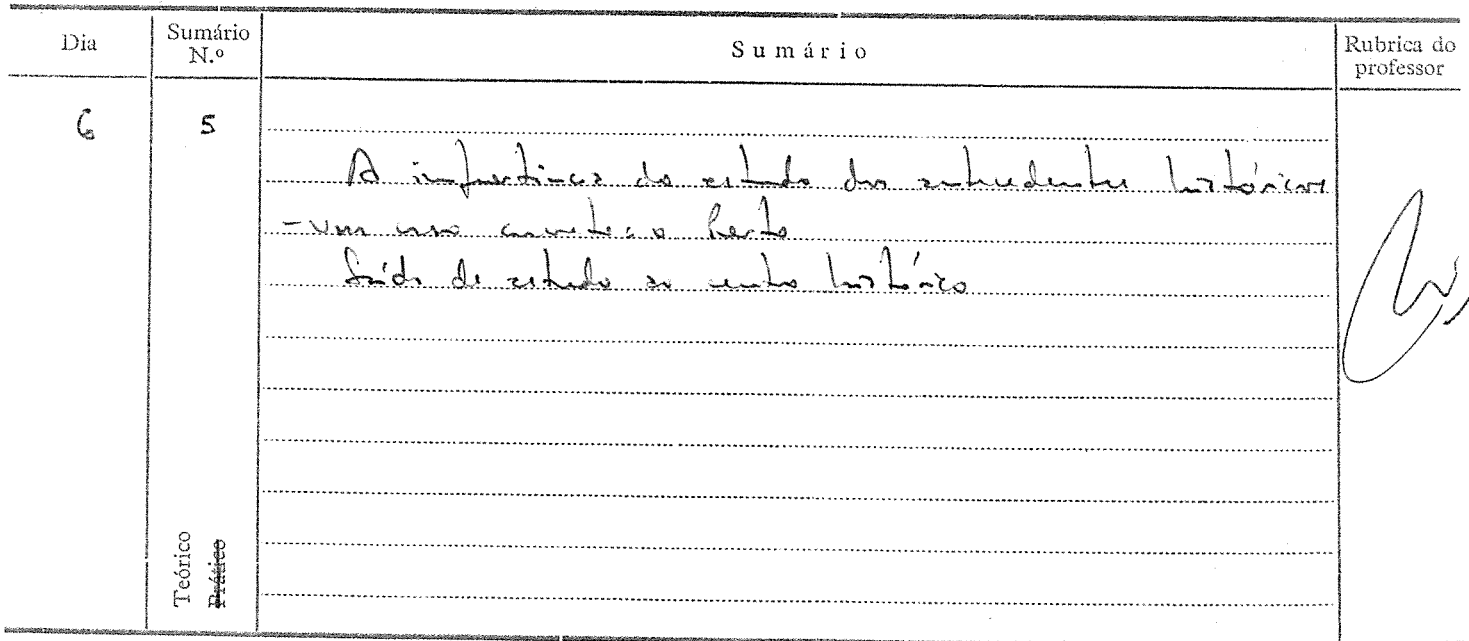 Dia
Sumário N.º
Sumário
Rubrica do professor
6
5
A importância do estudo dos antecedentes históricos
- Um caso concreto: o Porto
Saída de estudo ao centro histórico
Teórico
Prático